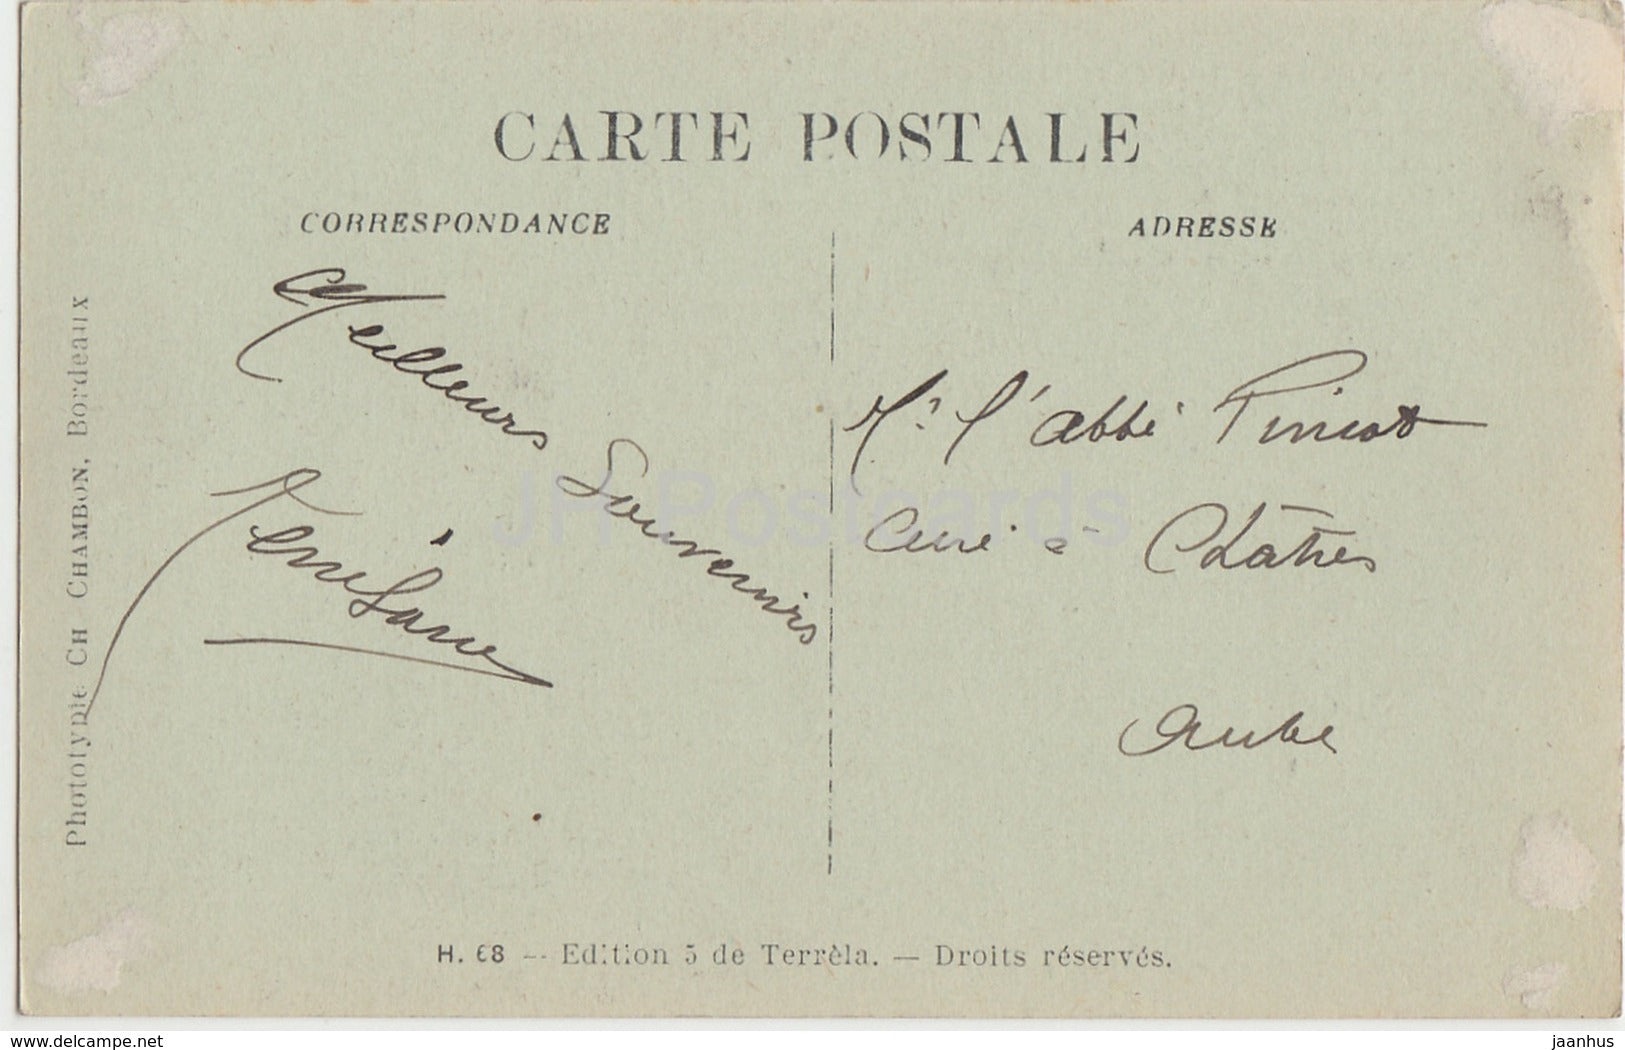 CARTE POSTALE
CORRESPONDANCE
ADRESSE
Meilleurs Souvenirs
Mr l'abbé Pincot
Curé à Châtres
Aube
Phototypie CH CHAMBON, Bordeaux
H. 68 -- Edition 5 de Terrèla. — Droits réservés.
JH Postcards
www.delcampe.net
jaanhus